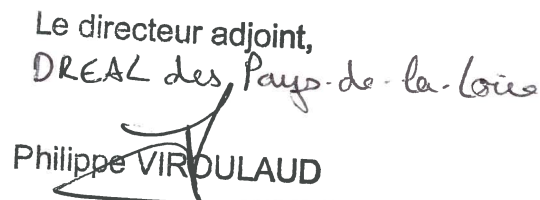 Le directeur adjoint,
DREAL des Pays-de-la-Loire
Philippe VIROULAUD